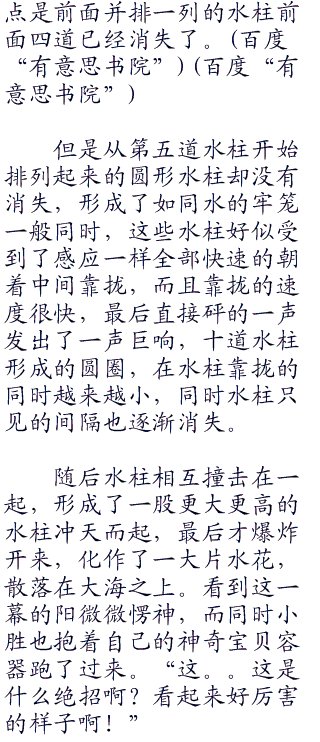 点是前面并排一列的水柱前
面四道已经消失了。(百度
“有意思书院”)(百度“有
意思书院”)
但是从第五道水柱开始
排列起来的圆形水柱却没有
消失，形成了如同水的牢笼
一般同时，这些水柱好似受
到了感应一样全部快速的朝
着中间靠拢，而且靠拢的速
度很快，最后直接砰的一声
发出了一声巨响，十道水柱
形成的圆圈，在水柱靠拢的
同时越来越小，同时水柱只
见的间隔也逐渐消失。
随后水柱相互撞击在一
起，形成了一股更大更高的
水柱冲天而起，最后才爆炸
开来，化作了一大片水花，
散落在大海之上。看到这一
幕的阳微微愣神，而同时小
胜也抱着自己的神奇宝贝容
器跑了过来。“这。。这是
什么绝招啊？看起来好厉害
的样子啊！”